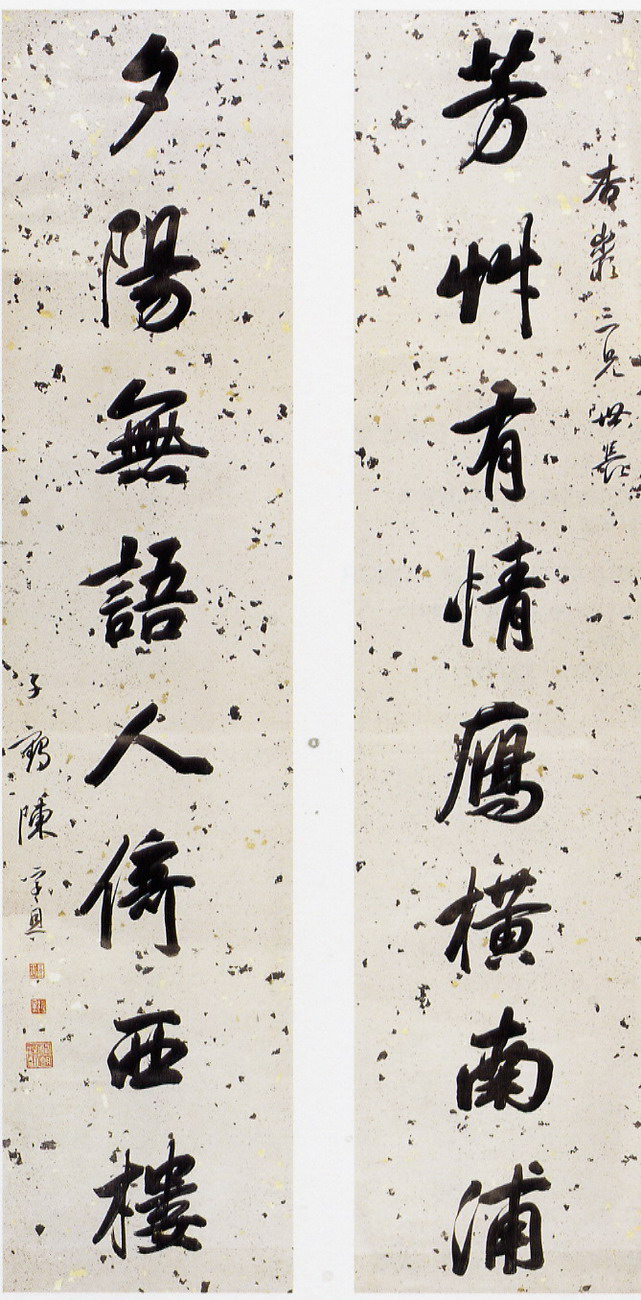 杏三兄世長
芳艸有情鴈橫南浦
夕陽無語人倚西樓
子鶴陳孚恩